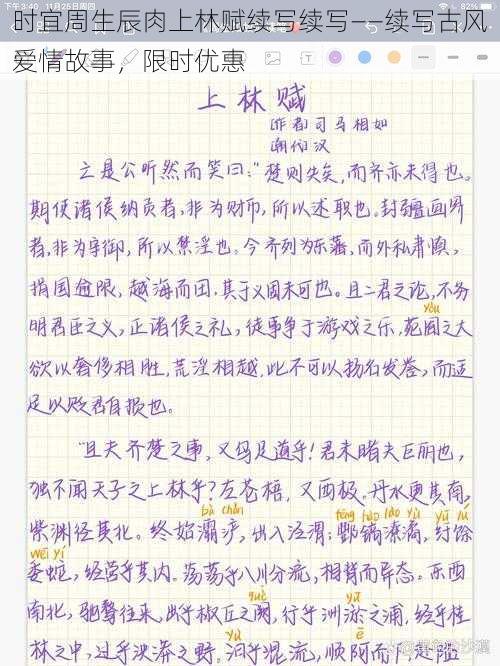 时宜周生辰肉上林赋续写续写——续写古风
爱情故事，限时优惠
下午3:40 11月25日周四
上林赋
作者司马相如
朝代汉
亡是公听然而笑曰："楚则失矣，而齐亦未得也。
期使诸侯纳贡者，非为财币，所以述职也。封疆画界
者，非为守御，所以禁淫也。今齐列为东藩，而外私肃慎，
捐国逾限，越海而田，其于义固未可也。且二君之论，不务
yòu
明君臣之义，正诸侯之礼，徒事争于游戏之乐，苑囿之大
欲以奢侈相胜，荒淫相越，此不可以扬名发誉，而适
足以贬君自损也。
"且夫齐楚之事，又乌足道乎！君未睹夫巨丽也，
独不闻天子之上林乎？左苍梧，又西极。丹水更其南，
bà chǎn
紫渊径其北。终始灞浐，出入泾渭；酆镐潦潏，纡馀
wēi yí
委蛇，经营乎其内。荡荡乎八川分流，相背而异态。东西
què yū
南北，驰骛往来，出乎椒丘之阙，行乎洲淤之浦，经乎桂
林之中，过乎泱漭之野。汩乎混流，顺阿而下，赴隘